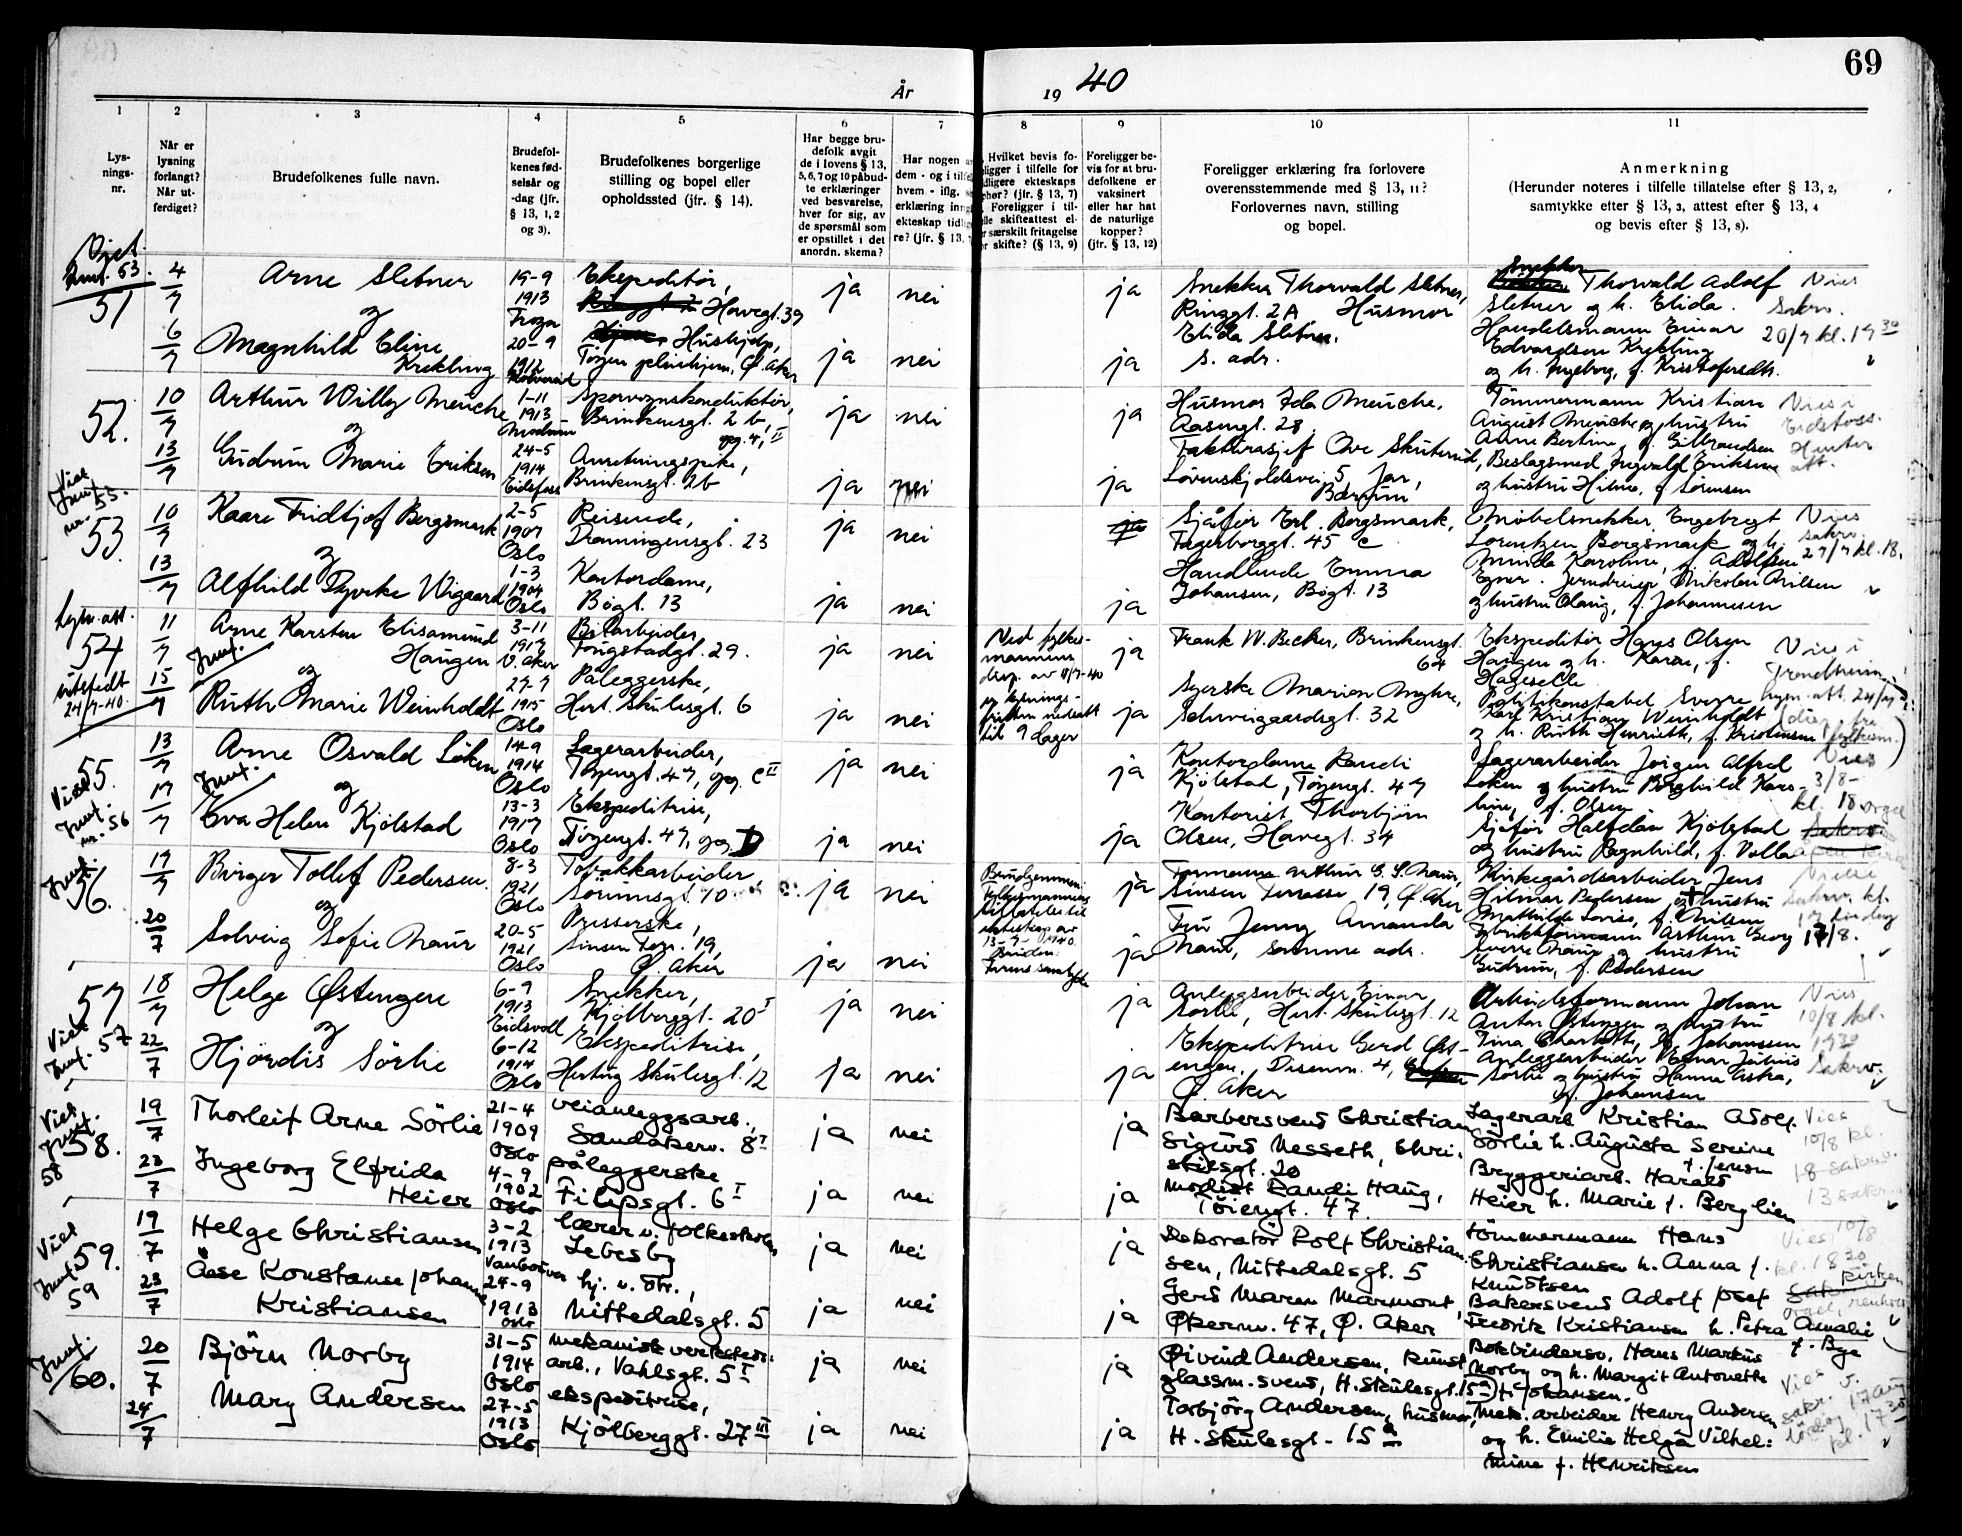 69
År 19 40
1
2
3
4
5
6
7
8
9
10
11
Lys-
nings-
nr.
Når er
lysning
forlangt?
Når ut-
ferdiget?
Brudefolkenes fulle navn.
Brudefol-
kenes fød-
selsår og
-dag (jfr.
§ 13, 1, 2
og 3).
Brudefolkenes borgerlige
stilling og bopel eller
opholdssted (jfr. § 14).
Har begge bru-
defolk avgit
de i lovens § 13,
5, 6, 7 og 10 påbud-
te erklæringer
ved besvarelse,
hver for sig, av
de spørsmål som
er opstillet i det
anordn. skema?
Har nogen
dem - og i tilfe
hvem - iflg.
erklæring inng
ekteskap tidlig
re? (jfr. § 13,
Hvilket bevis fo-
ligger i tilfelle for
dligere ekteskaps
phør? (jfr. § 13, 7)
Foreligger i til-
lle skifteattest el-
r særskilt fritagelse
r skifte? (§ 13, 9)
Foreligger be-
vis for at bru-
defolkene er
vaksinert
eller har hat
de naturlige
kopper?
(jfr. § 13, 12)
Foreligger erklæring fra forlovere
overensstemmende med § 13, 11?
Forlovernes navn, stilling
og bopel.
Anmerkning
(Herunder noteres i tilfelle tillatelse efter § 13, 2,
samtykke efter § 13, 3, attest efter § 13, 4
og bevis efter § 13, 8).
Viet
51
4/7
6/7
Arne Sletner
og
Magnhild Eline
Krekling
19-9
1913
20-9
1912
Ekspeditør,
Havegt. 39
Hushjelp,
Tøyen pleiehjem, Ø. Aker
ja nei
ja nei
ja
ja
Snekker Thorvald Sletner,
Ringgt. 2A Husmor
Elida Sletner,
s. adr.
Snekker
Thorvald Adolf
Sletner og h. Elida.
Handelsmann Einar
Edvardsen Krekling
og h. Ingeborg, f. Kristofersdtr.
Vies
Sakr.
20/7 kl. 17 30
52.
10/7
13/7
Arthur Willy Meuche
og
Gudrun Marie Eriksen
1-11
1913
Modum
24-5
1914
Eidsfoss
Sporvognskonduktør,
Brinkensgt. 2 b,
opg. 4, II
Anretningspike,
Brinkensgt. 2b
ja nei
ja nei
ja
ja
Husmor Ida Meuche,
Aasengt. 28
Fakturasjef Ove Skuterud,
Løvenskjoldsvei 5 Jar,
Bærum
Tømmermann Kristian
August Meuche og hustru
Anne Bertine, f. Gilbrandsen
Beslagsmed Ingvald Eriksen
og hustru Hilma, f. Sørensen
Vies i
Eidsfoss.
Henter
att.
Viet
Innf.
nr. 55.
53.
10/7
13/7
Kaare Fridtjof Bergsmark
og
Alfhild Dyveke Wigaard
2-5
1907
Oslo
1-3
1904
Oslo
Reisende,
Dronningensgt. 23
Kontordame,
Bøgt. 13
ja nei
ja nei
ja
ja
Sjåfør Erl. Bergsmark,
Fagerborggt. 45 c
Handlende Emma
Johansen, Bøgt. 13
Møbelsnekker Engebregt
Lorentzen Bergsmark og h.
Minda Karoline, f. Adolfsen
Nikolai Nilsen
og hustru Olaug, f. Johannesen
Vies
sakr.
27/7 kl. 18.
Lysn. att.
54
utstedt
24/7-40.
11/7
15/7
Arne Karsten Elisamund
Haugen
og
Ruth Marie Weinholdt
3-11
1917
V. Aker
27-7
1915
Oslo
Bilarbeider
Tongstadgt. 29.
Påleggerske,
Hert. Skulesgt. 6
ja nei
ja nei
Ved fylkes-
mannens
disp. av 11/7-40
og lysnings-
fristen nedsatt
til 9 dager
ja
ja
Frank W. Becker, Brinkensgt.
64
Syerske Marion Myhre,
Schweigaardsgt. 32
Ekspeditør Hans Olsen
Haugen og h. Karen, f.
Politikonstabel Sverre
Karl Kristian Weinholdt
og h. Ruth Henriette, f. Kristensen
Vies i
Trondheim
lysn. att. 24/7
55.
Viet
Innf.
nr. 56
13/7
17/7
Arne Osvald Løken
og
Eva Helen Kjölstad
14-9
1914
Oslo
13-3
1917
Oslo
Lagerarbeider,
Tøyengt. 47, opg. C II
Ekspeditrise,
Tøyengt. 47, opg. D
ja nei
ja nei
ja
ja
Kontordame Randi
Kjölstad, Tøyengt. 47
Kontorist Thorbjørn
Olsen, Havegt. 34
Lagerarbeider Jørgen Alfred
Løken og hustru Borghild Karo-
line, f. Olsen
Sjåfør Halfdan Kjölstad
og hustru Ragnhild, f. Volla
Vies
3/8-
kl. 18 orgel
Innf.
56.
17/7
20/7
Birger Tollef Pedersen
og
Solveig Sofie Naur
8-3
1921
Oslo
20-5
1921
Oslo
Tobakkarbeider
Sørumsgt. 10
Presserske,
Sinsen Terr. 19,
Ø. Aker
ja nei
ja nei
Brudgommen
Fylkesmannens
tillatelse til
ekteskap av
13-7-1940.
Bruden:
ja
ja
Formann Arthur G. S. Naur,
Sinsen Terrasse 19, Ø. Aker
Fru Jenny Amanda
Naur, samme adr.
Kirkegårdsarbeider Jens
Hilmar Pedersen og hustru
Mathilde Lovise, f. Nilsen
Fabrikkformann Arthur Georg
Sverre Naur og hustru
Gudrun, f. Pedersen
Sakr. kl.
17 lørdag
17/8.
57
Viet
Innf. 57
18/7
22/7
Helge Østengen
og
Hjördis Sörlie
6-9
1913
Eidsvoll
6-12
1914
Oslo
Snekker,
Kjölberggt. 20 I
Ekspeditrise,
Hertug Skulesgt. 12
ja nei
ja nei
ja
ja
Anleggsarbeider Einar
Sörlie, Hert. Skulesgt. 12
Ekspeditrise Gerd Øst-
engen, Disenvn. 4,
Ø. Aker
Arbeidsformann Johan
Anton Østengen og hustru
Tina Charlotte, f. Johannesen
Anleggsarbeider Einar Julius
Sörlie og hustru Hanna Astra,
f. Johansen
Vies
10/8 kl.
17 30
Sakr.
Viet
Innf.
58
58.
19/7
23/7
Thorleif Arne Sörlie
Ingeborg Elfrida
Heier
21-4
1909
Oslo
4-9
1902
Oslo
veianleggsarb.,
Sandakerv. 8 I
påleggerske
Filipsgt. 6 I
ja nei
ja nei
ja
ja
Barbersvend Christian
Sigurd Nesseth, Chri-
stiesgt. 20
modist Randi Haug,
Töiengt. 47
Lagerarb. Kristian Adolf
Sörlie h. Augusta Serine
f. Jensen
Bryggeriarb. Harald
Heier h. Marie f. Berglien
Vies
10/8 kl.
18 - sakr.
Viet
Innf.
59
59.
19/7
23/7
Helge Christiansen
Åse Konstanse Johanne
Kristiansen
3-2
1913
Vancouver
24-9
1913
Oslo
lærer v. folkeskolen
Lebesby
hj. v. str.,
Nittedalsgt. 5
ja nei
ja nei
ja
ja
Dekoratør Rolf Christian-
sen, Nittedalsgt. 5
Gerd Maren Marmont,
Økernv. 47, Ø. Aker
tömmermann Hans
Christiansen h. Anna f.
Knudtsen
Bakersvend Adolf Josef
Fredrik Kristiansen h. Petra Amalie
f. Bye
Vies 10/8
kl. 18 30
Kirken
orgel,
Innf.
60.
20/7
24/7
Björn Norby
Mary Andersen
31-5
1914
Oslo
27-5
1913
Oslo
mekanisk verksteds-
arb., Vahlsgt. 5 I
ekspeditrise,
Kjölberggt. 27 III
ja nei
ja nei
ja
ja
Øivind Andersen, kunst
glassm. svend, H. Skulesgt. 15 a
Torbjörg Andersen, husmor,
H. Skulesgt. 15 a
Bokbindersv. Hans Markus
Norby og h. Margit Antonette
f. Johansen.
Mek. arbeider Henry Andersen
og h. Emilie Helga Vilhel-
mine f. Henriksen
Vies
sakr. v.
lördag 17 aug
kl. 17 30